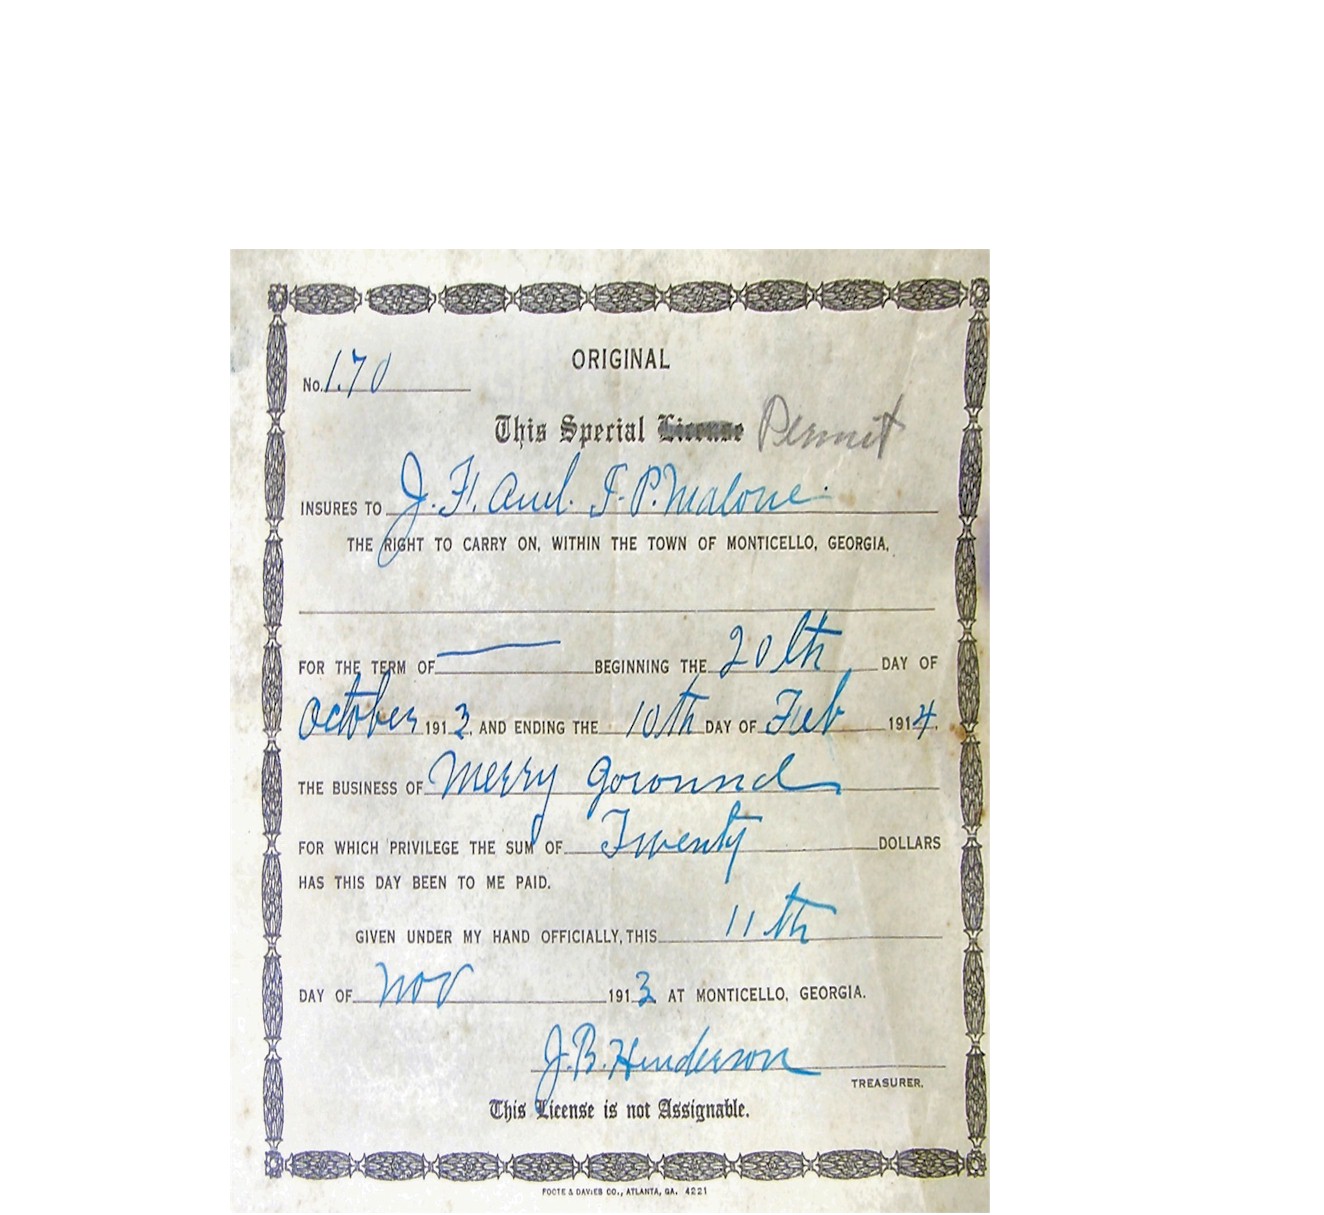 ORIGINAL
No. 170
This Special License Permit
INSURES TO J. F. and F. P. Malone.
THE RIGHT TO CARRY ON, WITHIN THE TOWN OF MONTICELLO, GEORGIA,
FOR THE TERM OF — BEGINNING THE 20th DAY OF
October 1913, AND ENDING THE 10th DAY OF Feb 1914.
THE BUSINESS OF Merry goround
FOR WHICH PRIVILEGE THE SUM OF Twenty DOLLARS
HAS THIS DAY BEEN TO ME PAID.
GIVEN UNDER MY HAND OFFICIALLY, THIS 11th
DAY OF Nov 1913 AT MONTICELLO, GEORGIA.
J. B. Henderson
TREASURER.
This License is not Assignable.
FOOTE & DAVIES CO., ATLANTA, GA. 4221